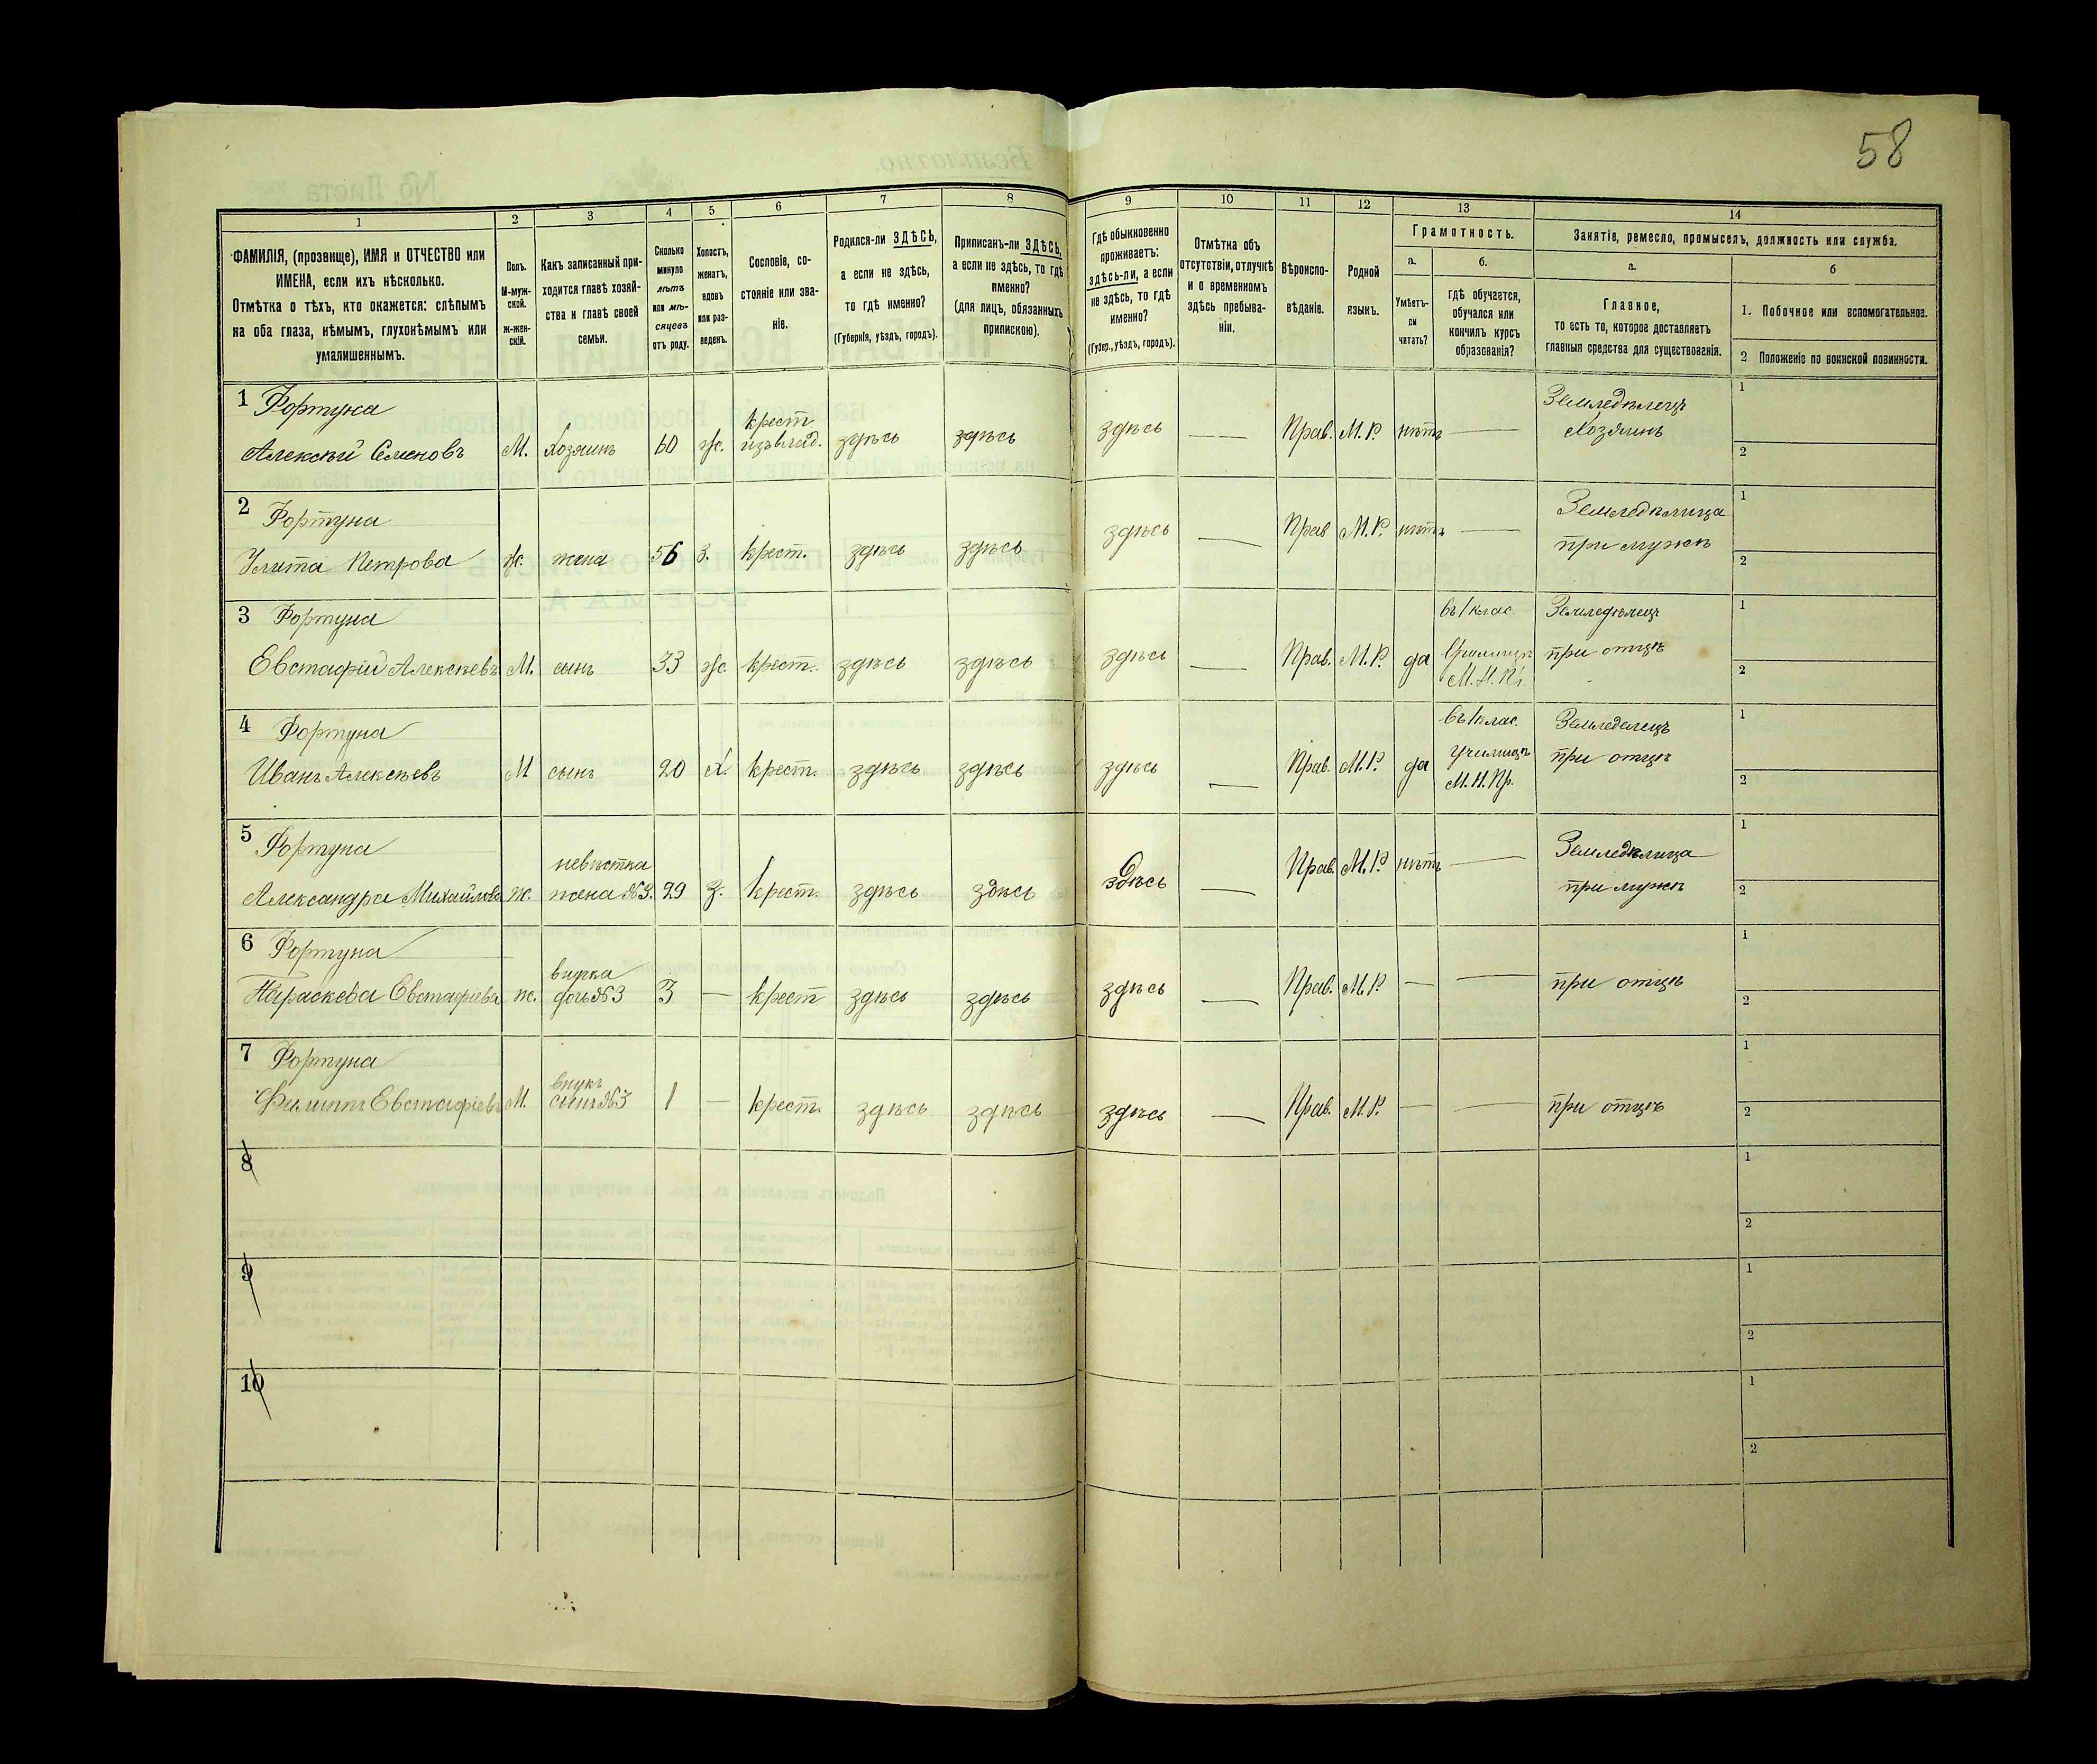 58
1
2
3
4
5
6
7
8
9
10
11
12
13
14
ФАМИЛІЯ, (прозвище), ИМЯ и ОТЧЕСТВО или
ИМЕНА, если ихъ нѣсколько.
Отмѣтка о тѣхъ, кто окажется: слѣпымъ
на оба глаза, нѣмымъ, глухонѣмымъ или
умалишеннымъ.
Полъ.
М-муж-
ской.
ж-жен-
скій.
Какъ записанный при-
ходится главѣ хозяй-
ства и главѣ своей
семьи.
Сколько
минуло
лѣтъ
или мѣ-
сяцевъ
отъ роду.
Холостъ,
женатъ,
вдовъ
или раз-
веденъ.
Сословіе, со-
стояніе или зва-
ніе.
Родился-ли ЗДѢСЬ,
а если не здѣсь,
то гдѣ именно?
(Губернія, уѣздъ, городъ).
Приписанъ-ли ЗДѢСЬ,
а если не здѣсь, то гдѣ
именно?
(для лицъ, обязанныхъ
припискою).
Гдѣ обыкновенно
проживаетъ:
здѣсь-ли, а если
не здѣсь, то гдѣ
именно?
(Губер., уѣздъ, городъ).
Отмѣтка объ
отсутствіи, отлучкѣ
и о временномъ
здѣсь пребыва-
ніи.
Вѣроиспо-
вѣданіе.
Родной
языкъ.
Грамотность.
а.
Умѣетъ-
ли
читать?
б.
гдѣ обучается,
обучался или
кончилъ курсъ
образованія?
Занятіе, ремесло, промыселъ, должность или служба.
а.
Главное,
то есть то, которое доставляетъ
главныя средства для существованія.
б
1. Побочное или вспомогательное.
2 Положеніе по воинской повинности.
1 Фортуна
Алексѣй Семеновъ
М.
Хозяинъ
60
ж.
крест
изъ влад.
здѣсь
здѣсь
здѣсь
—
Прав.
М.Р.
нѣтъ
—
Земледѣлецъ
Хозяинъ
1
2
2 Фортуна
Улита Петрова
ж.
жена
56
з.
крест.
здѣсь
здѣсь
здѣсь
—
Прав
М.Р.
нѣтъ
—
Земледѣлица
при мужѣ
1
2
3 Фортуна
Евстафій Алексѣевъ
М.
сынъ
33
ж.
крест.
здѣсь
здѣсь
здѣсь
—
Прав.
М.Р.
да
въ 1 клас
Училищѣ
М.Н.Пр.
Земледѣлецъ
при отцѣ
1
2
4 Фортуна
Иванъ Алексѣевъ
М
сынъ
20
Х.
крест.
здѣсь
здѣсь
здѣсь
—
Прав.
М.Р.
да
въ 1 клас.
Училищѣ
М.Н.Пр.
Земледелецъ
при отцѣ
1
2
5 Фортуна
Александра Михайлова
ж.
невѣстка
жена №3.
29
з.
крест.
здѣсь
здѣсь
здѣсь
—
Прав.
М.Р.
нѣтъ
—
Земледѣлица
при мужѣ
1
2
6 Фортуна
Параскева Евстафіева
ж.
внучка
дочь №3
3
—
крест
здѣсь
здѣсь
здѣсь
—
Прав.
М.Р.
—
—
при отцѣ
1
2
7 Фортуна
Филиппъ Евстафіевъ
М.
внукъ
сынъ №3
1
—
крест.
здѣсь
здѣсь
здѣсь
—
Прав.
М.Р.
—
—
при отцѣ
1
2
8
1
2
9
1
2
10
1
2